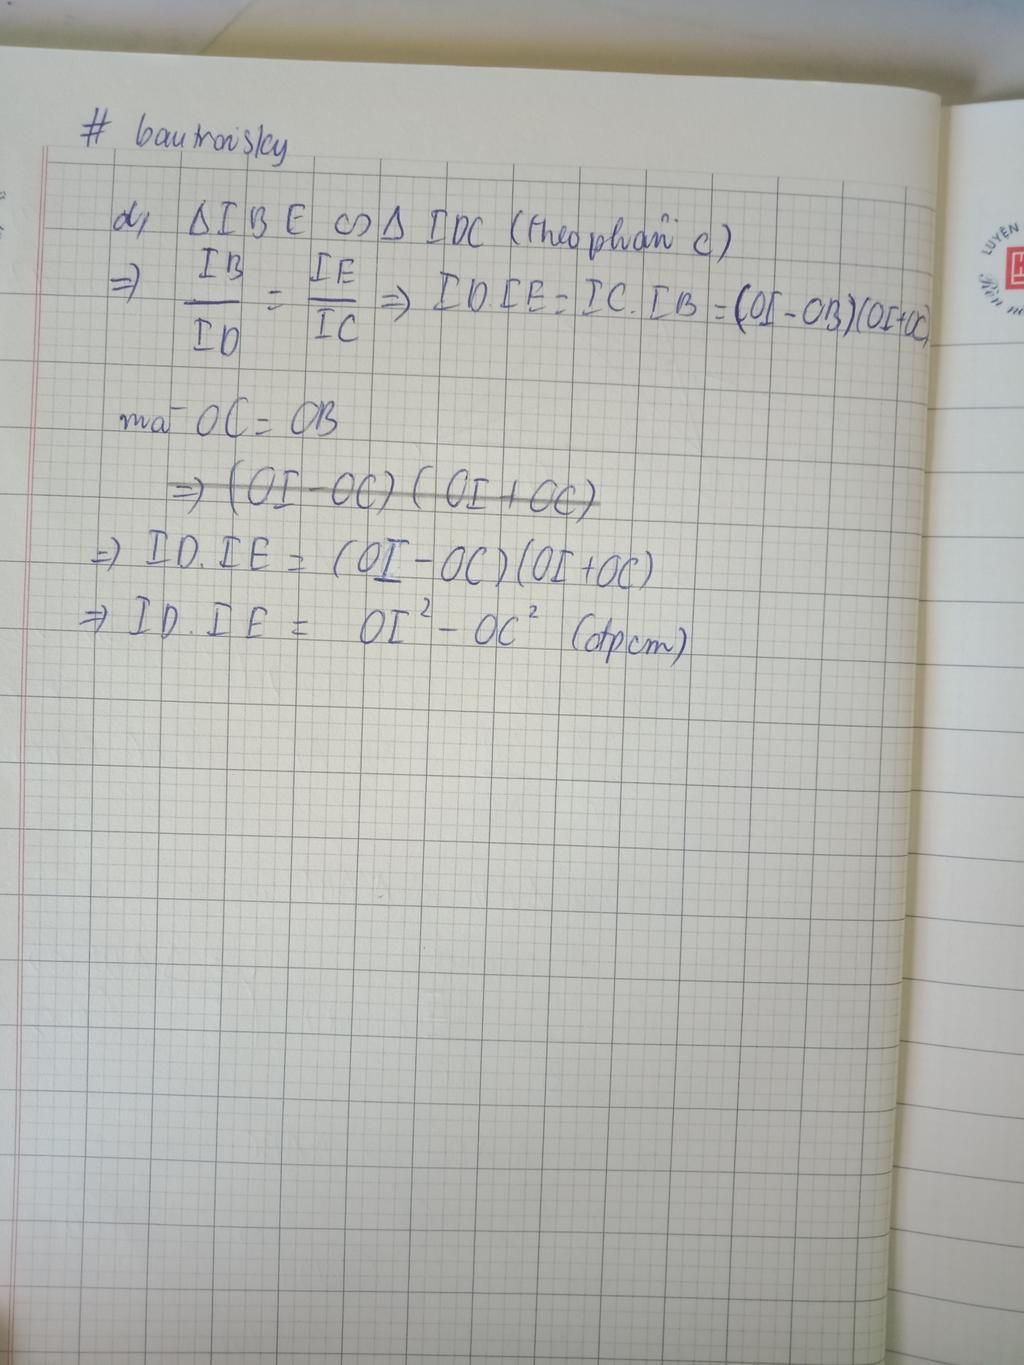 # bautroisky
d, ΔIBE ∽ Δ IDC (theo phần c)
⇒ IB/ID = IE/IC ⇒ ID.IE = IC.IB = (OI - OB)(OI+OC)
mà OC = OB
⇒ (OI - OC) (OI + OC)
⇒ ID.IE = (OI - OC)(OI+OC)
⇒ ID.IE = OI² - OC² (đpcm)
LUYỆN